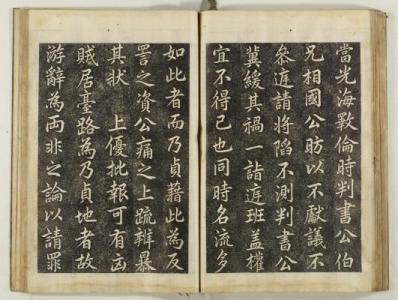 當光海斁倫時判書公伯
兄相國公昉以不獻議不
叅庭請將陷不測判書公
冀緩其禍一詣庭班盖權
宜不得已也同時名流多
如此者而乃貞藉此為反
詈之資公痛之上疏辨暴
其状 上優批報可有凶
賊居臺路為乃貞地者故
游辭為两非之論以請罪